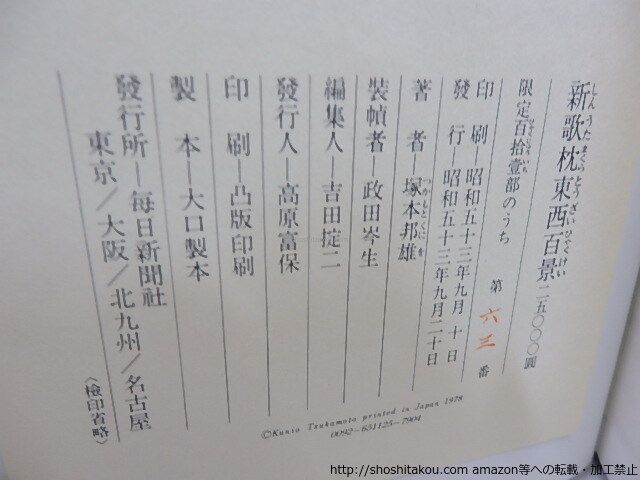 新歌枕東西百景 二五〇〇〇圓
しんうたまくらとうざいひゃくけい
限定百拾壹部のうち 第六三番
ひゃくじゅういち
印刷―昭和五十三年九月十日
發行―昭和五十三年九月二十日
著者―塚本邦雄
つかもとくにを
裝幀者―政田岑生
編集人―吉田掟二
發行人―高原富保
印刷―凸版印刷
製本―大口製本
發行所―毎日新聞社
東京/大阪/北九州/名古屋
〈檢印省略〉
©Kunio Tsukamoto printed in Japan 1978
0092-651125-7904
http://shoshitakou.com amazon等への転載・加工禁止